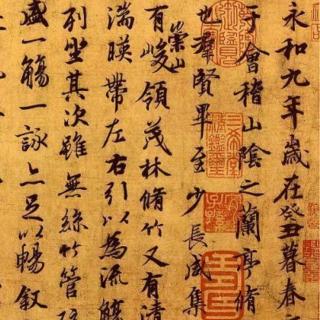 永和九年歲在癸丑暮春
于會稽山陰之蘭亭脩
也羣賢畢至少長咸集
有崇山峻領茂林脩竹又有清
湍暎帶左右引以為流觴
列坐其次雖無絲竹管
盛一觴一詠亦足以暢敘